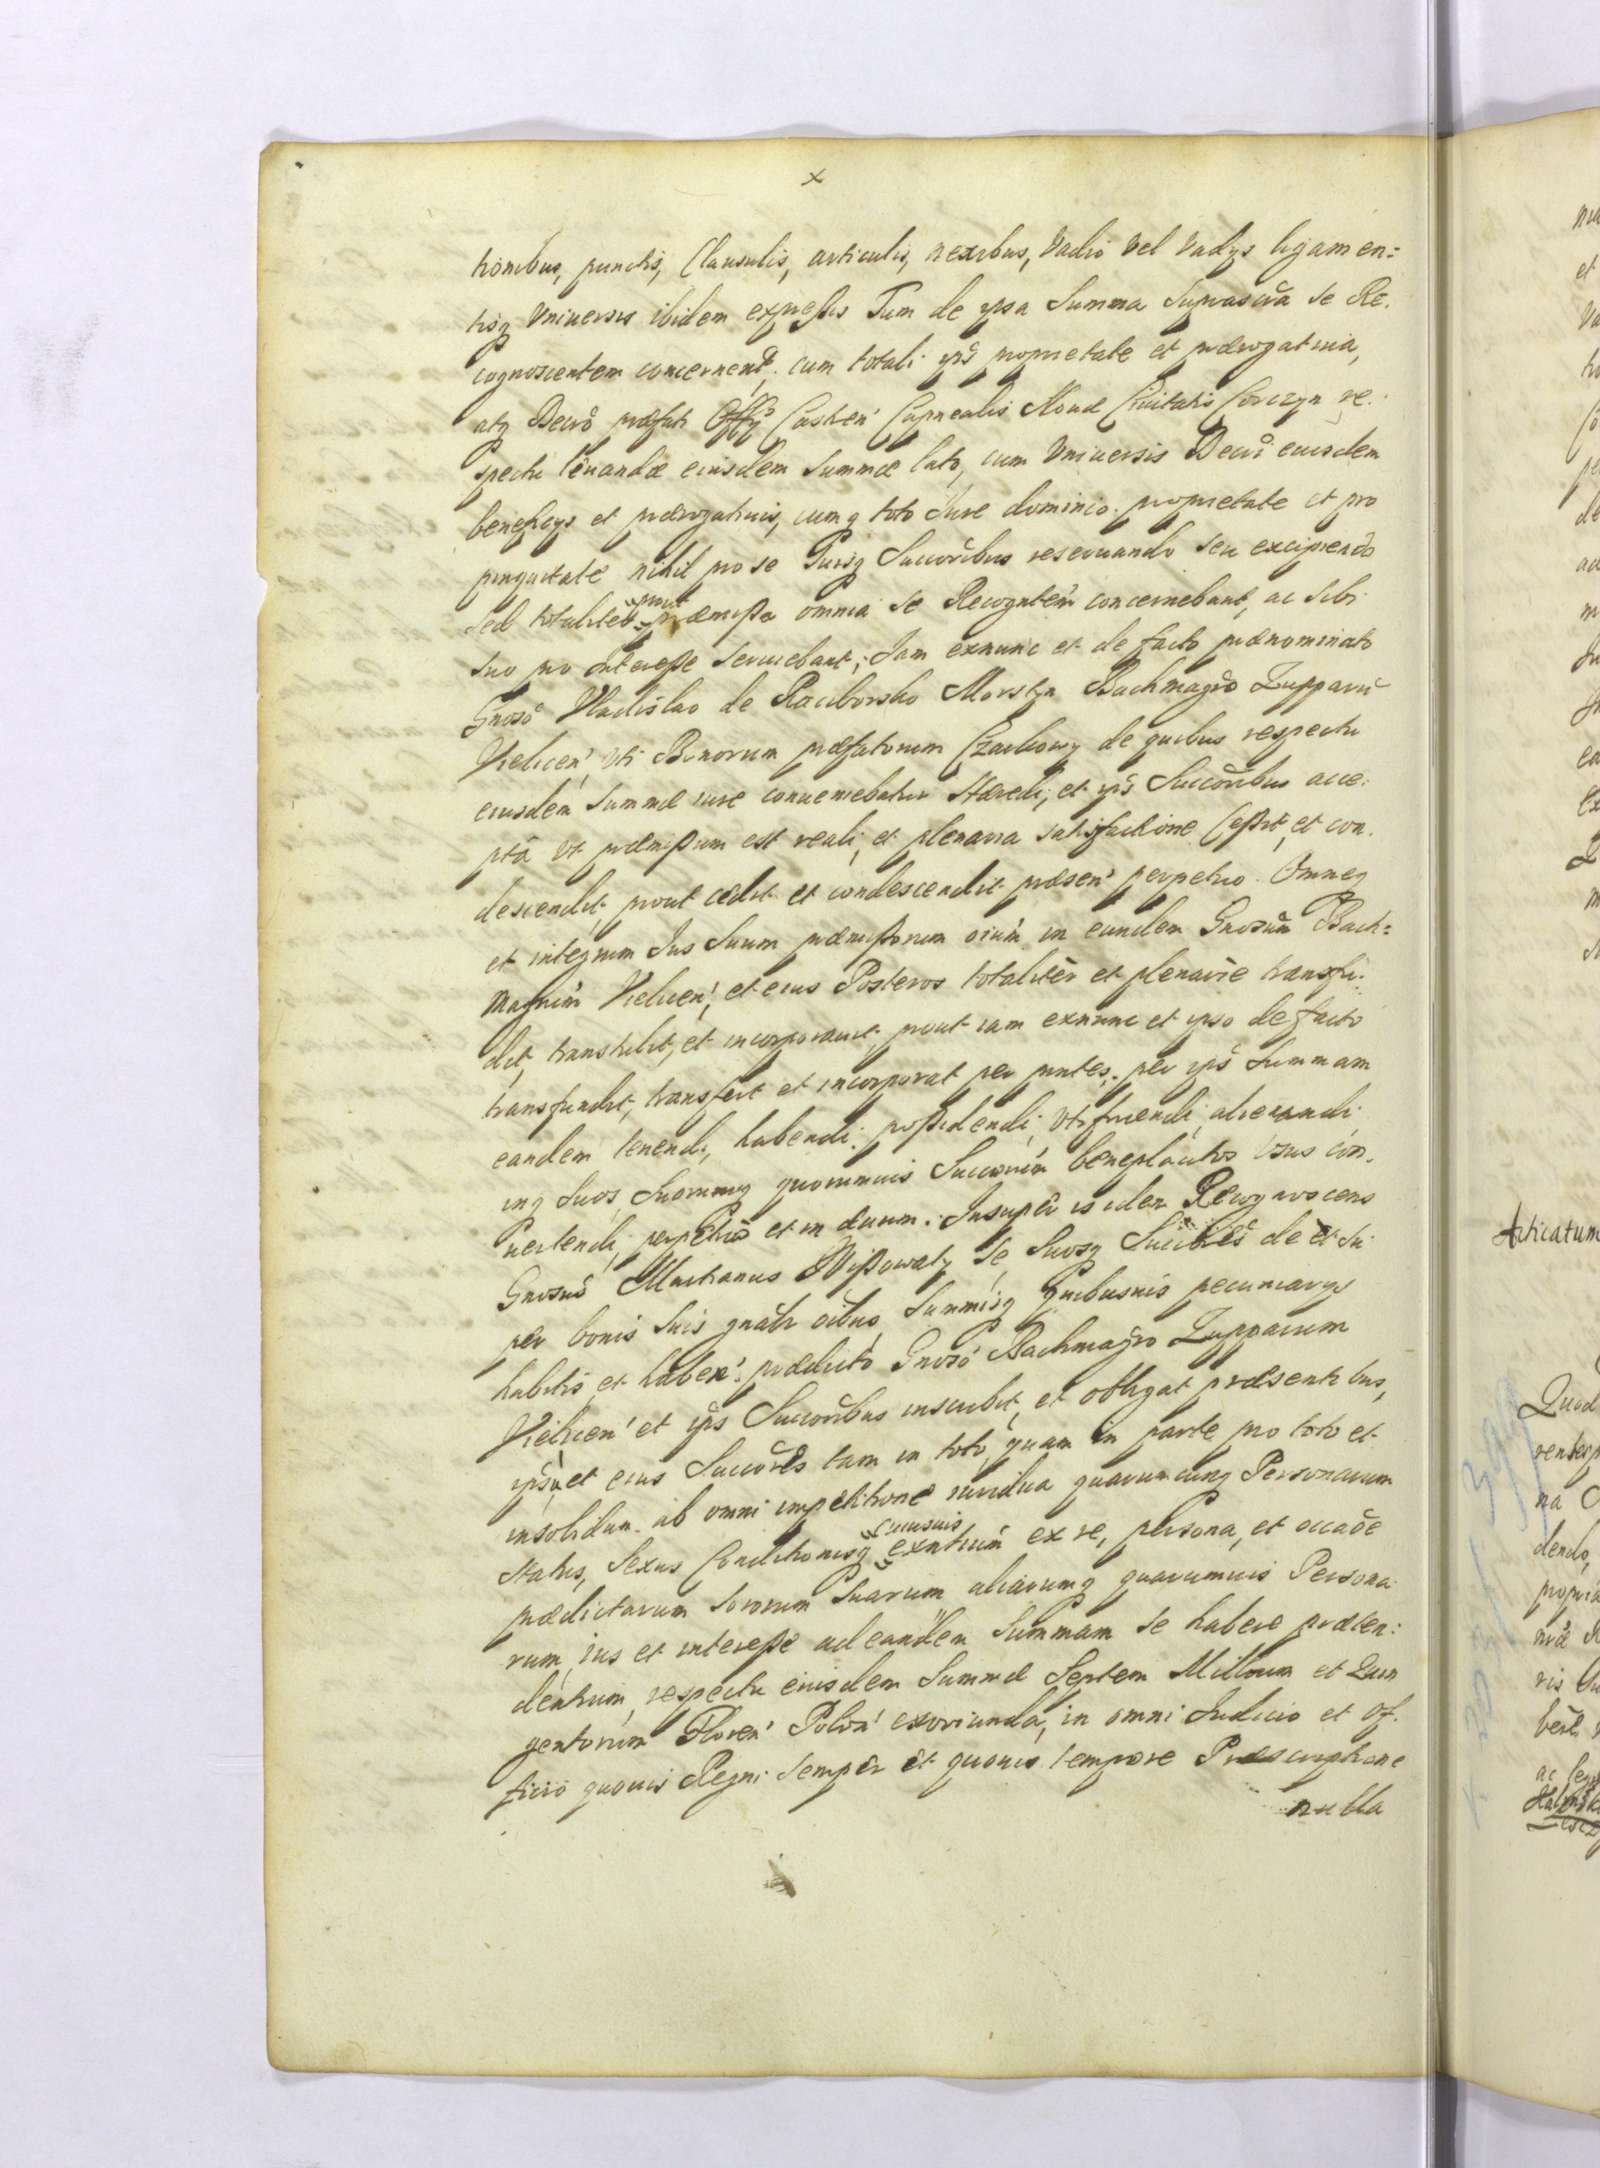 x
tionibus, punctis, Clausulis, articulis, nexibus, Vadio vel Vadys ligamen=
tisq Vniuersis ibidem expressis Tum de ipsa Summa Suprascra se Re.
cognoscentem concernent. cum totali ips proprietate et prærogatiua,
atq Decro præfati Offy Castren Capnealis Nouæ Ciuitatis Corczyn re.
spectu leuandæ eiusdem Summæ lato, cum Vniuersis Decri eiusdem
beneficys et prærogatiuis, cumq toto Iure dominio proprietate et pro
pinquitate nihil pro se Suisq Succoribus reseruando seu excipiendo
sed totaliter prout præmissa omnia se Recognten concernebant, ac sibi
suo pro interesse seruiebant; Iam exnunc et de facto prænominato
Gnoso Vladislao de Raciborsko Morstyn Bachmagro Zupparu
Vielicen, vti Bonorum præfatorum Czarkowy de quibus respectu
eiusdem Summæ iure conueniebatur Hæredi, et ips Succoribus acce.
pta vt præmissum est reali, et plenaria satisfactione Cessit, et con.
descendit, prout cedit et condescendit præsen perpetuo. Omneq
et integrum Ius Suum præmissorum oium in eundem Gnosum Bach=
magrum Vielicen, et eius Posteros totaliter et plenarie transfu.
dit, transtulit, et incorporauit, prout iam exnunc et ipso de facto
transfundit, transfert et incorporat per pntes, per ips Summam
eandem tenendi, habendi, possidendi, vtifruendi, alienandi
inq Suos Suorumq quorumuis Succorum beneplacitos Vsus con.
uertendi, perpetuo et in æuum. Insuper is idem Recognoscens
Gnosus Martianus Wissowaty Se Suosq Succores de et su
per bonis Suis gnalr oibus, Summisq quibusuis pecuniarys
habitis et haben. prædicto Gnoso Bachmagro Zupparum
Vielicen et ips Succoribus inscribit, et obligat præsentibus,
ipsu, et eius Succores tam in toto, quam in parte pro toto et
insolidum ab omni impetitione iuridica quarumcunq Personarum
Status, Sexus Conditionisq cuiusuis exntium ex re, persona, et occaoe
prædictarum Sororum Suarum aliarumq quarumuis Persona
rum, ius et interesse ad eandem Summam se habere præten:
dentium, respectu eiusdem Summæ Septem Millium et Quin
gentorum Floren Polon exoriunda, in omni Iudicio et Of.
ficio quouis Regni semper et quouis tempore Præscriptione
nulla